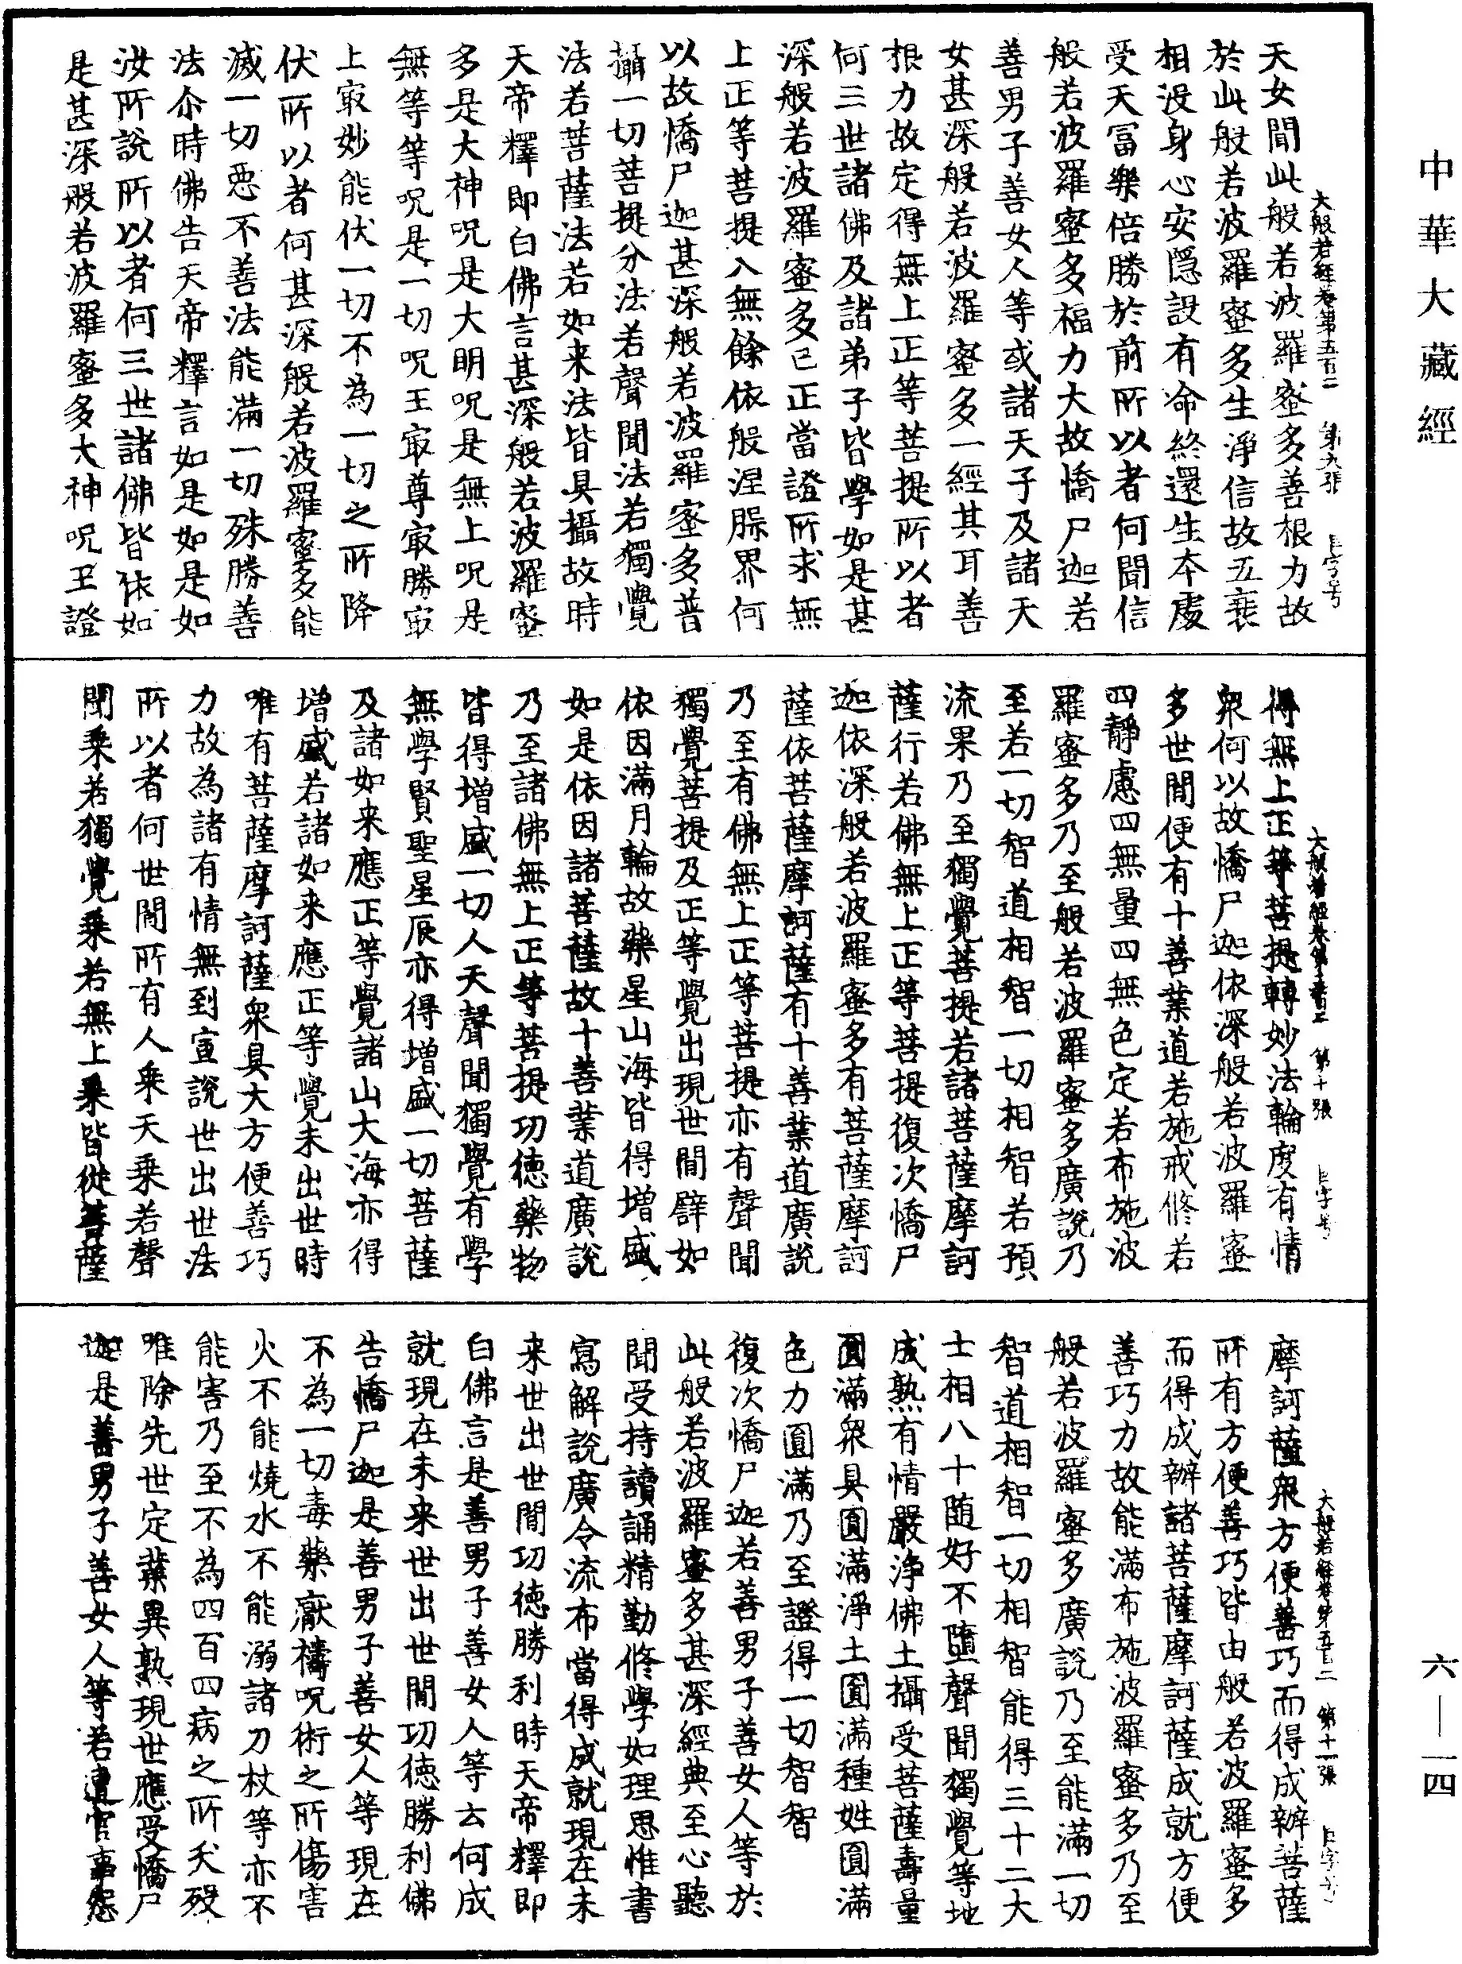 中華大藏經
大般若經卷第五百二 第九張
天女聞此般若波羅蜜多善根力故
於此般若波羅蜜多生淨信故五衰
相沒身心安隱設有命終還生本處
受天冨樂倍勝於前所以者何聞信
般若波羅蜜多福力大故憍尸迦若
善男子善女人等或諸天子及諸天
女甚深般若波羅蜜多一經其耳善
根力故定得無上正等菩提所以者
何三世諸佛及諸弟子皆學如是甚
深般若波羅蜜多已正當證所求無
上正等菩提入無餘依般涅槃界何
以故憍尸迦甚深般若波羅蜜多普
攝一切菩提分法若聲聞法若獨覺
法若菩薩法若如来法皆具攝故時
天帝釋即白佛言甚深般若波羅蜜
多是大神呪是大明呪是無上呪是
無等等呪是一切呪王㝡尊㝡勝㝡
上㝡妙能伏一切不為一切之所降
伏所以者何甚深般若波羅蜜多能
滅一切惡不善法能滿一切殊勝善
法尒時佛告天帝釋言如是如是如
汝所說所以者何三世諸佛皆依如
是甚深般若波羅蜜多大神呪王證
大般若經卷第五百二 第十張
得無上正等菩提轉妙法輪度有情
衆何以故憍尸迦依深般若波羅蜜
多世間便有十善業道若施戒修若
四靜慮四無量四無色定若布施波
羅蜜多乃至般若波羅蜜多廣說乃
至若一切智道相智一切相智若預
流果乃至獨覺菩提若諸菩薩摩訶
薩行若佛無上正等菩提復次憍尸
迦依深般若波羅蜜多有菩薩摩訶
薩依菩薩摩訶薩有十善業道廣說
乃至有佛無上正等菩提亦有聲聞
獨覺菩提及正等覺出現世間譬如
依因滿月輪故藥星山海皆得增盛
如是依因諸菩薩故十善業道廣說
乃至諸佛無上正等菩提功德藥物
皆得增盛一切人天聲聞獨覺有學
無學賢聖星辰亦得增盛一切菩薩
及諸如来應正等覺諸山大海亦得
增盛若諸如来應正等覺未出世時
唯有菩薩摩訶薩衆具大方便善巧
力故為諸有情無到宣說世出世法
所以者何世間所有人乘天乘若聲
聞乘若獨覺乘若無上乘皆從菩薩
大般若經卷第五百二 第十一張
摩訶薩衆方便善巧而得成辦菩薩
所有方便善巧皆由般若波羅蜜多
而得成辦諸菩薩摩訶薩成就方便
善巧力故能滿布施波羅蜜多乃至
般若波羅蜜多廣說乃至能滿一切
智道相智一切相智能得三十二大
士相八十随好不墮聲聞獨覺等地
成熟有情嚴淨佛土攝受菩薩壽量
圓滿衆具圓滿淨土圓滿種姓圓滿
色力圓滿乃至證得一切智智
復次憍尸迦若善男子善女人等於
此般若波羅蜜多甚深經典至心聽
聞受持讀誦精勤修學如理思惟書
寫解說廣令流布當得成就現在未
来世出世間功德勝利時天帝釋即
白佛言是善男子善女人等云何成
就現在未来世出世間功德勝利佛
告憍尸迦是善男子善女人等現在
不為一切毒藥厭禱呪術之所傷害
火不能燒水不能溺諸刀杖等亦不
能害乃至不為四百四病之所夭歿
唯除先世定業異熟現世應受憍尸
迦是善男子善女人等若遭官事怨
六—一四